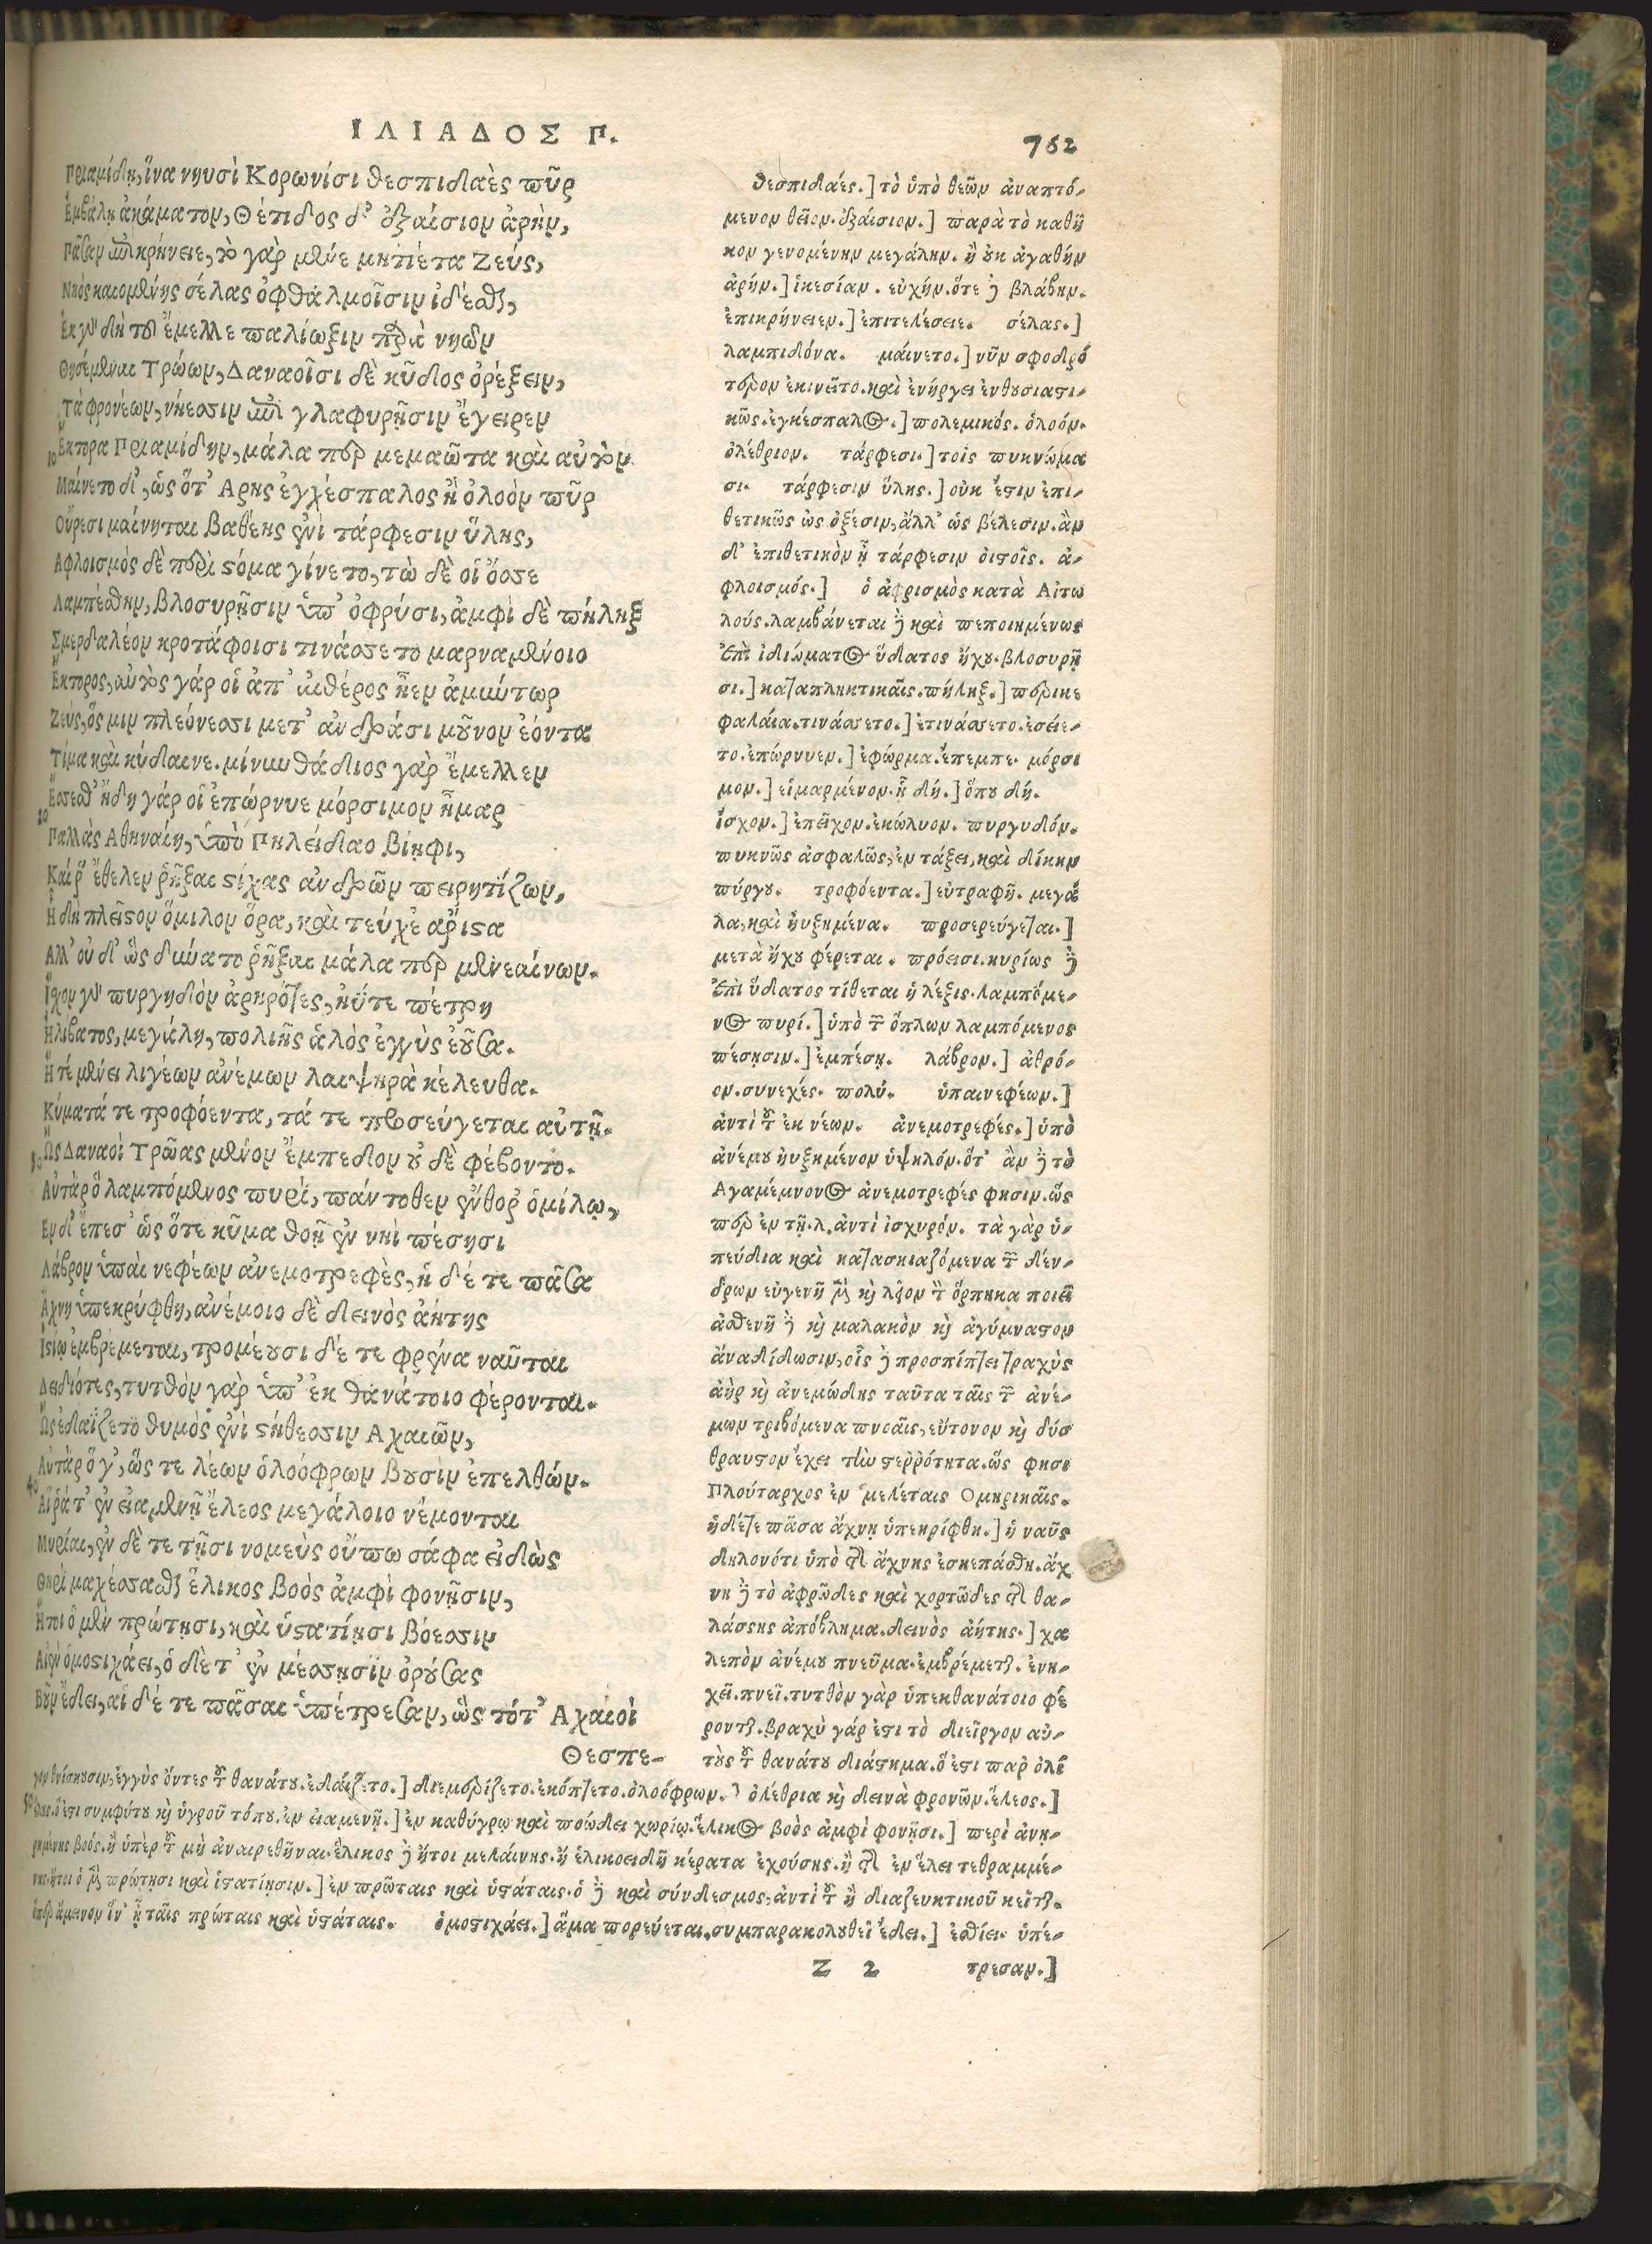 ΙΛΙΑΔΟΣ Π.
762
Πριαμίδῃ, ἵνα νηυσὶ Κορωνίσι θεσπιδαὲς πῦρ
Ἐμβάλῃ ἀκάματον, Θέτιδος δ' ἐξαίσιον ἀρὴν,
Πᾶσαν ἐπικρήνειε, τὸ γὰρ μένε μητίετα Ζεύς,
Νηὸς καιομένης σέλας ὀφθαλμοῖσιν ἰδέσθαι,
Ἐκ γὰρ δὴ τοῦ ἔμελλε παλίωξιν παρὰ νηῶν
Θησέμεναι Τρώων, Δαναοῖσι δὲ κῦδος ὀρέξειν,
Τὰ φρονέων, νήεσσιν ἐπὶ γλαφυρῇσιν ἔγειρεν
10 Ἕκτορα Πριαμίδην, μάλα περ μεμαῶτα καὶ αὐτὸν
Μαίνετο δ', ὡς ὅτ' Αρης ἐγχέσπαλος ἢ ὀλοὸν πῦρ
Οὔρεσι μαίνηται βαθέης ἐνὶ τάρφεσιν ὕλης,
Αφλοισμὸς δὲ περὶ στόμα γίνετο, τὼ δὲ οἱ ὄσσε
Λαμπέσθην, βλοσυρῇσιν ὑπ' ὀφρύσι, ἀμφὶ δὲ πήληξ
Σμερδαλέον κροτάφοισι τινάσσετο μαρναμένοιο
Ἕκτορος, αὐτὸς γάρ οἱ ἀπ' αἰθέρος ἦεν ἀμύντωρ
Ζεὺς, ὅς μιν πλεόνεσσι μετ' ἀνδράσι μοῦνον ἐόντα
Τίμα καὶ κύδαινε. μίνυνθάδιος γὰρ ἔμελλεν
Ἔσσεσθ' ἤδη γάρ οἱ ἐπώρνυε μόρσιμον ἦμαρ
20 Παλλὰς Αθηναίη, ὑπὸ Πηλείδαο βίηφι,
Καί ῥ' ἔθελεν ῥῆξαι στίχας ἀνδρῶν πειρητίζων,
Ἧ δὴ πλεῖστον ὅμιλον ὅρα, καὶ τεύχε' ἄριστα
Αλλ' οὐδ' ὣς δύνατο ῥῆξαι μάλα περ μενεαίνων.
Ἴσχον γὰρ πυργηδὸν ἀρηρότες, ἠΰτε πέτρη
Ἠλίβατος, μεγάλη, πολιῆς ἁλὸς ἐγγὺς ἐοῦσα.
Ἥτε μένει λιγέων ἀνέμων λαιψηρὰ κέλευθα.
Κύματά τε τροφόεντα, τά τε προσεύγεται αὐτῇ.
30 Ὣς Δαναοὶ Τρῶας μένον ἔμπεδον οὐδὲ φέβοντο.
Αὐτὰρ ὃ λαμπόμενος πυρὶ, πάντοθεν ἔνθορ' ὁμίλῳ,
Εν δ' ἔπεσ' ὡς ὅτε κῦμα θοῇ ἐν νηῒ πέσησι
Λάβρον ὑπαὶ νεφέων ἀνεμοτρεφὲς, ἡ δέ τε πᾶσα
Ἄχνη ὑπεκρύφθη, ἀνέμοιο δὲ δεινὸς ἀήτης
Ἱστίῳ ἐμβρέμεται, τρομέουσι δέ τε φρένα ναῦται
Δειδιότες, τυτθὸν γὰρ ὑπ' ἐκ θανάτοιο φέρονται.
Ὣς ἐδαΐζετο θυμὸς ἐνὶ στήθεσσιν Αχαιῶν,
Αὐτὰρ ὅ γ', ὥς τε λέων ὀλοόφρων βουσὶν ἐπελθών.
40 Αἵ ῥά τ' ἐν εἱαμενῇ ἕλεος μεγάλοιο νέμονται
Μυρίαι, ἐν δέ τε τῇσι νομεὺς οὔπω σάφα εἰδὼς
Θηρὶ μαχέσσασθαι ἕλικος βοὸς ἀμφὶ φονῇσιν,
Ἤτοι ὃ μὲν πρώτῃσι, καὶ ὑστατίῃσι βόεσσιν
Αἰὲν ὁμοστιχάει, ὁ δέ τ' ἐν μέσσῃσϊν ὀρούσας
Βοῦν ἔδει, αἱ δέ τε πᾶσαι ὑπέτρεσαν, ὣς τότ' Αχαιοὶ
Θεσπε-
θεσπιδαές.] τὸ ὑπὸ θεῶν ἀναπτό-
μενον θεῖον. ἐξαίσιον.] παρὰ τὸ καθῆ
κον γενομένην μεγάλην. ἢ οὐκ ἀγαθήν
ἀρήν.] ἱκεσίαν. εὐχήν. ὅτε δὲ βλάβην.
ἐπικρήνειεν.] ἐπιτελέσειε. σέλας.]
λαμπιδόνα. μαίνετο.] νῦν σφοδρό
τερον ἐκινεῖτο. καὶ ἐνήργει ἐνθουσιαστι-
κῶς. ἐγχέσπαλος.] πολεμικός. ὁλοόν.
ὀλέθριον. τάρφεσι.] τοῖς πυκνώμα
σι. τάρφεσιν ὕλης.] οὐκ ἔστιν ἐπι-
θετικῶς ὡς ὀξέσιν, ἀλλ' ὡς βέλεσιν. ἂν
δ' ἐπιθετικὸν ᾖ τάρφεσιν ὀϊστοῖς. ἀ-
φλοισμός.] ὁ ἀφρισμὸς κατὰ Αἰτω
λούς. λαμβάνεται δὲ καὶ πεποιημένως
ἐπὶ ἰδιώματος ὕδατος ἤχου. βλοσυρῇ
σι.] καταπληκτικαῖς. πήληξ.] περικε
φαλαία. τινάσσετο.] ἐτινάσσετο. ἐσείε-
το. ἐπώρνυεν.] ἐφώρμα. ἔπεμπε. μόρσι
μον.] εἱμαρμένον. ᾗ δή.] ὅπου δή.
ἴσχον.] ἐπεῖχον. ἐκώλυον. πυργηδόν.
πυκνῶς ἀσφαλῶς, ἐν τάξει, καὶ δίκην
πύργου. τροφόεντα.] εὐτραφῆ. μεγά
λα, καὶ ηὐξημένα. προσερεύγεται.]
μετὰ ἤχου φέρεται. πρόεισι. κυρίως δὲ
ἐπὶ ὕδατος τίθεται ἡ λέξις. λαμπόμε-
νος πυρί.] ὑπὸ τῶν ὅπλων λαμπόμενος
πέσησιν.] ἐμπέσῃ. λάβρον.] ἀθρό-
ον. συνεχές. πολύ. ὑπαινεφέων.]
ἀντὶ τοῦ ἐκ νέων. ἀνεμοτρεφές.] ὑπὸ
ἀνέμου ηὐξημένον ὑψηλόν. ὅτ' ἂν δὲ τὸ
Αγαμέμνονος ἀνεμοτρεφές φησιν. ὥς
περ ἐν τῇ. λ. ἀντὶ ἰσχυρόν. τὰ γὰρ ὑ-
πεύδια καὶ κατασκιαζόμενα τῶν δέν-
δρων εὐγενῆ μὲν καὶ λεῖον τὸν ὅρπηκα ποιεῖ
ἀσθενῆ δὲ καὶ μαλακὸν καὶ ἀγύμναστον
ἀναδίδωσιν, οἷς δὲ προσπίπτει τραχὺς
ἀὴρ καὶ ἀνεμώδης ταῦτα ταῖς τῶν ἀνέ-
μων τριβόμενα πνοαῖς, εὔτονον καὶ δύσ
θραυστον ἔχει τὴν στερρότητα. ὥς φησι
Πλούταρχος ἐν μελέταις Ομηρικαῖς.
ἡδέτε πᾶσα ἄχνῃ ὑπεκρίφθη.] ἡ ναῦς
δηλονότι ὑπὸ τῆς ἄχνης ἐσκεπάσθη. ἄχ
νη δὲ τὸ ἀφρῶδες καὶ χορτῶδες τῆς θα-
λάσσης ἀπόβλημα. δεινὸς ἀήτης.] χα
λεπὸν ἀνέμου πνεῦμα. ἐμβρέμεται. ἐνη-
χεῖ. πνεῖ. τυτθὸν γὰρ ὑπεκθανάτοιο φέ
ρονται. βραχὺ γάρ ἐστι τὸ διεῖργον αὐ-
τοὺς τοῦ θανάτου διάστημα. ὅ ἐστι παρ ὀλί
γον θνίσκουσιν, ἐγγὺς ὄντες τοῦ θανάτου. ἐδαΐζετο.] διεμερίζετο. ἐκόπτετο. ὀλοόφρων.] ὀλέθρια καὶ δεινὰ φρονῶν. ἕλεος.]
50 ἕλους. ὅ ἐστι συμφύτου καὶ ὑγροῦ τόπου. ἐν εἱαμενῇ.] ἐν καθύγρῳ καὶ ποώδει χωρίῳ. ἕλικος βοὸς ἀμφὶ φονῇσι.] περὶ ἀνῃ-
ρημένης βοός. ἢ ὑπὲρ τοῦ μὴ ἀναιρεθῆναι. ἕλικος δὲ ἤτοι μελαίνης. ἢ ἑλικοειδῆ κέρατα ἐχούσης. ἢ τῆς ἐν ἕλει τεθραμμέ-
νης. ἤτοι ὁ μὲν πρώτῃσι καὶ ὑστατίῃσιν.] ἐν πρώταις καὶ ὑστάταις. ὁ δὲ καὶ σύνδεσμος, ἀντὶ τοῦ ἢ διαζευκτικοῦ κεῖται.
ὅπερ ἄμεινον ἵν' ᾖ ταῖς πρώταις καὶ ὑστάταις. ὁμοστιχάει.] ἅμα πορεύεται, συμπαρακολουθεῖ ἔδει.] ἐσθίει. ὑπέ-
Z 2 τρεσαν.]